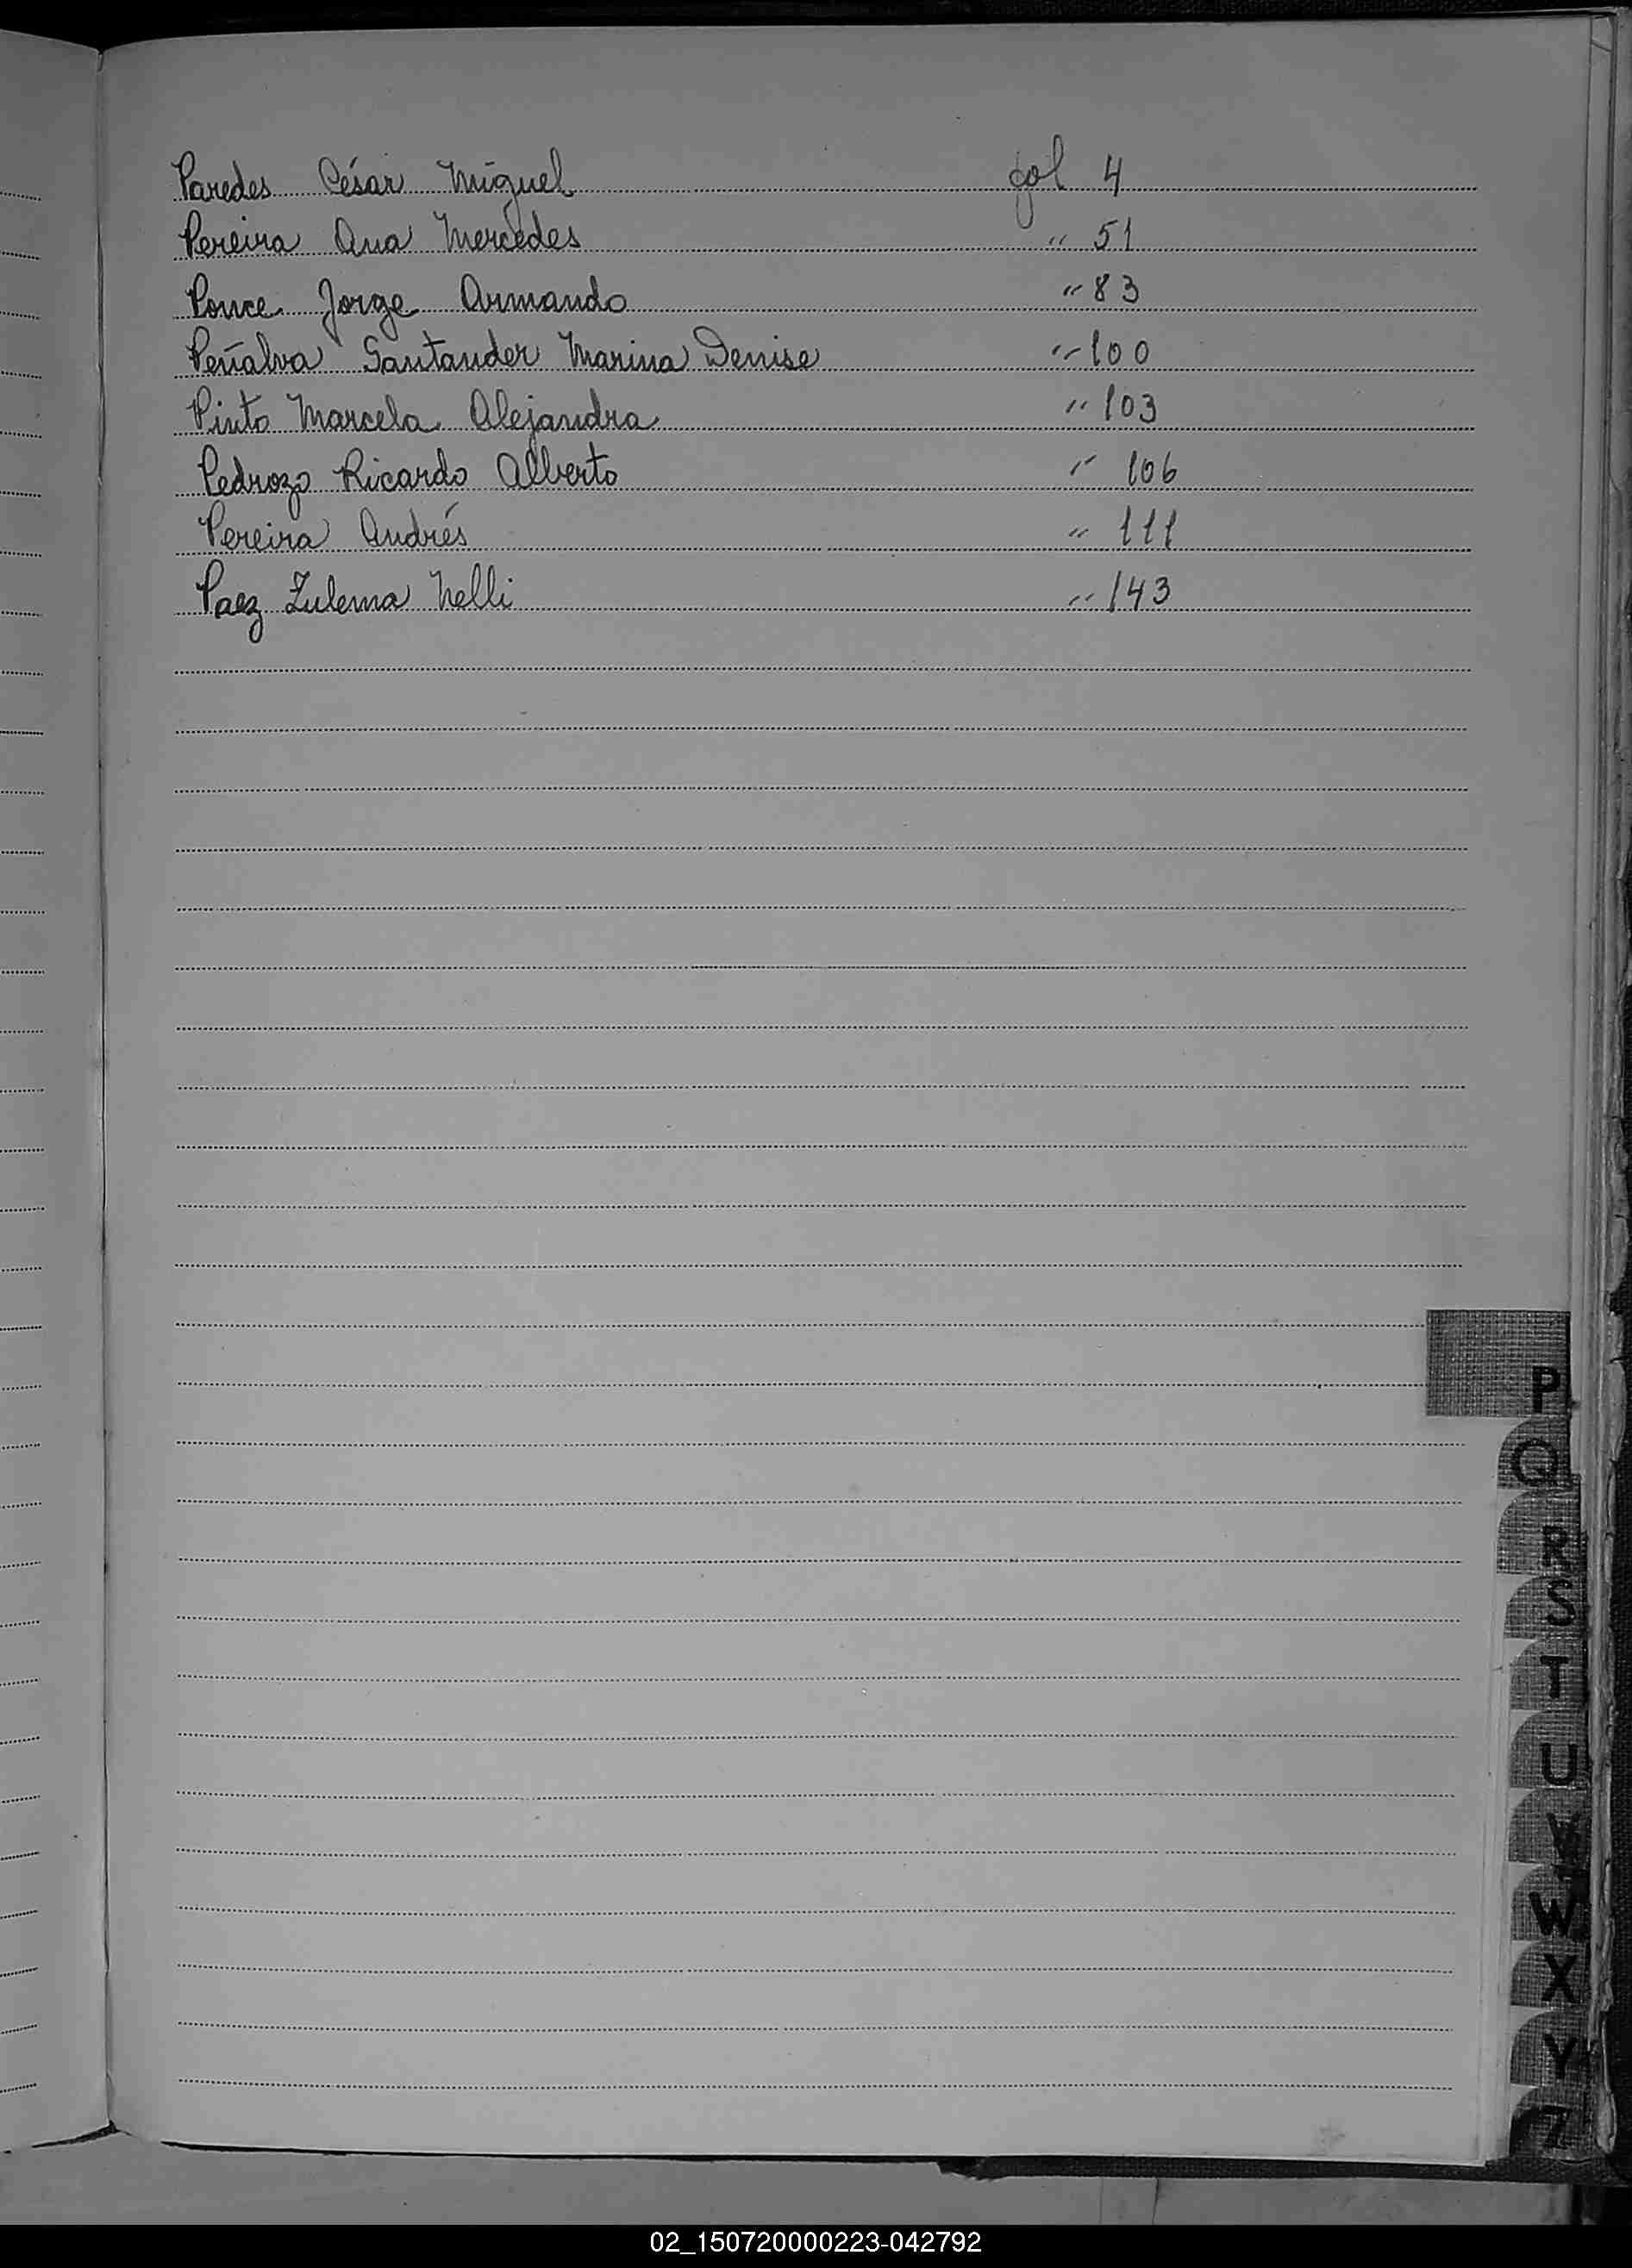 Paredes César Miguel fol 4
Pereira Ana Mercedes " 51
Ponce Jorge Armando " 83
Peñalva Santander Marina Denise " 100
Pinto Marcela Alejandra " 103
Pedrozo Ricardo Alberto " 106
Pereira Andrés " 111
Paez Zulema Nelli " 143
P
Q
R
S
T
U
V
W
X
Y
Z
02_150720000223-042792